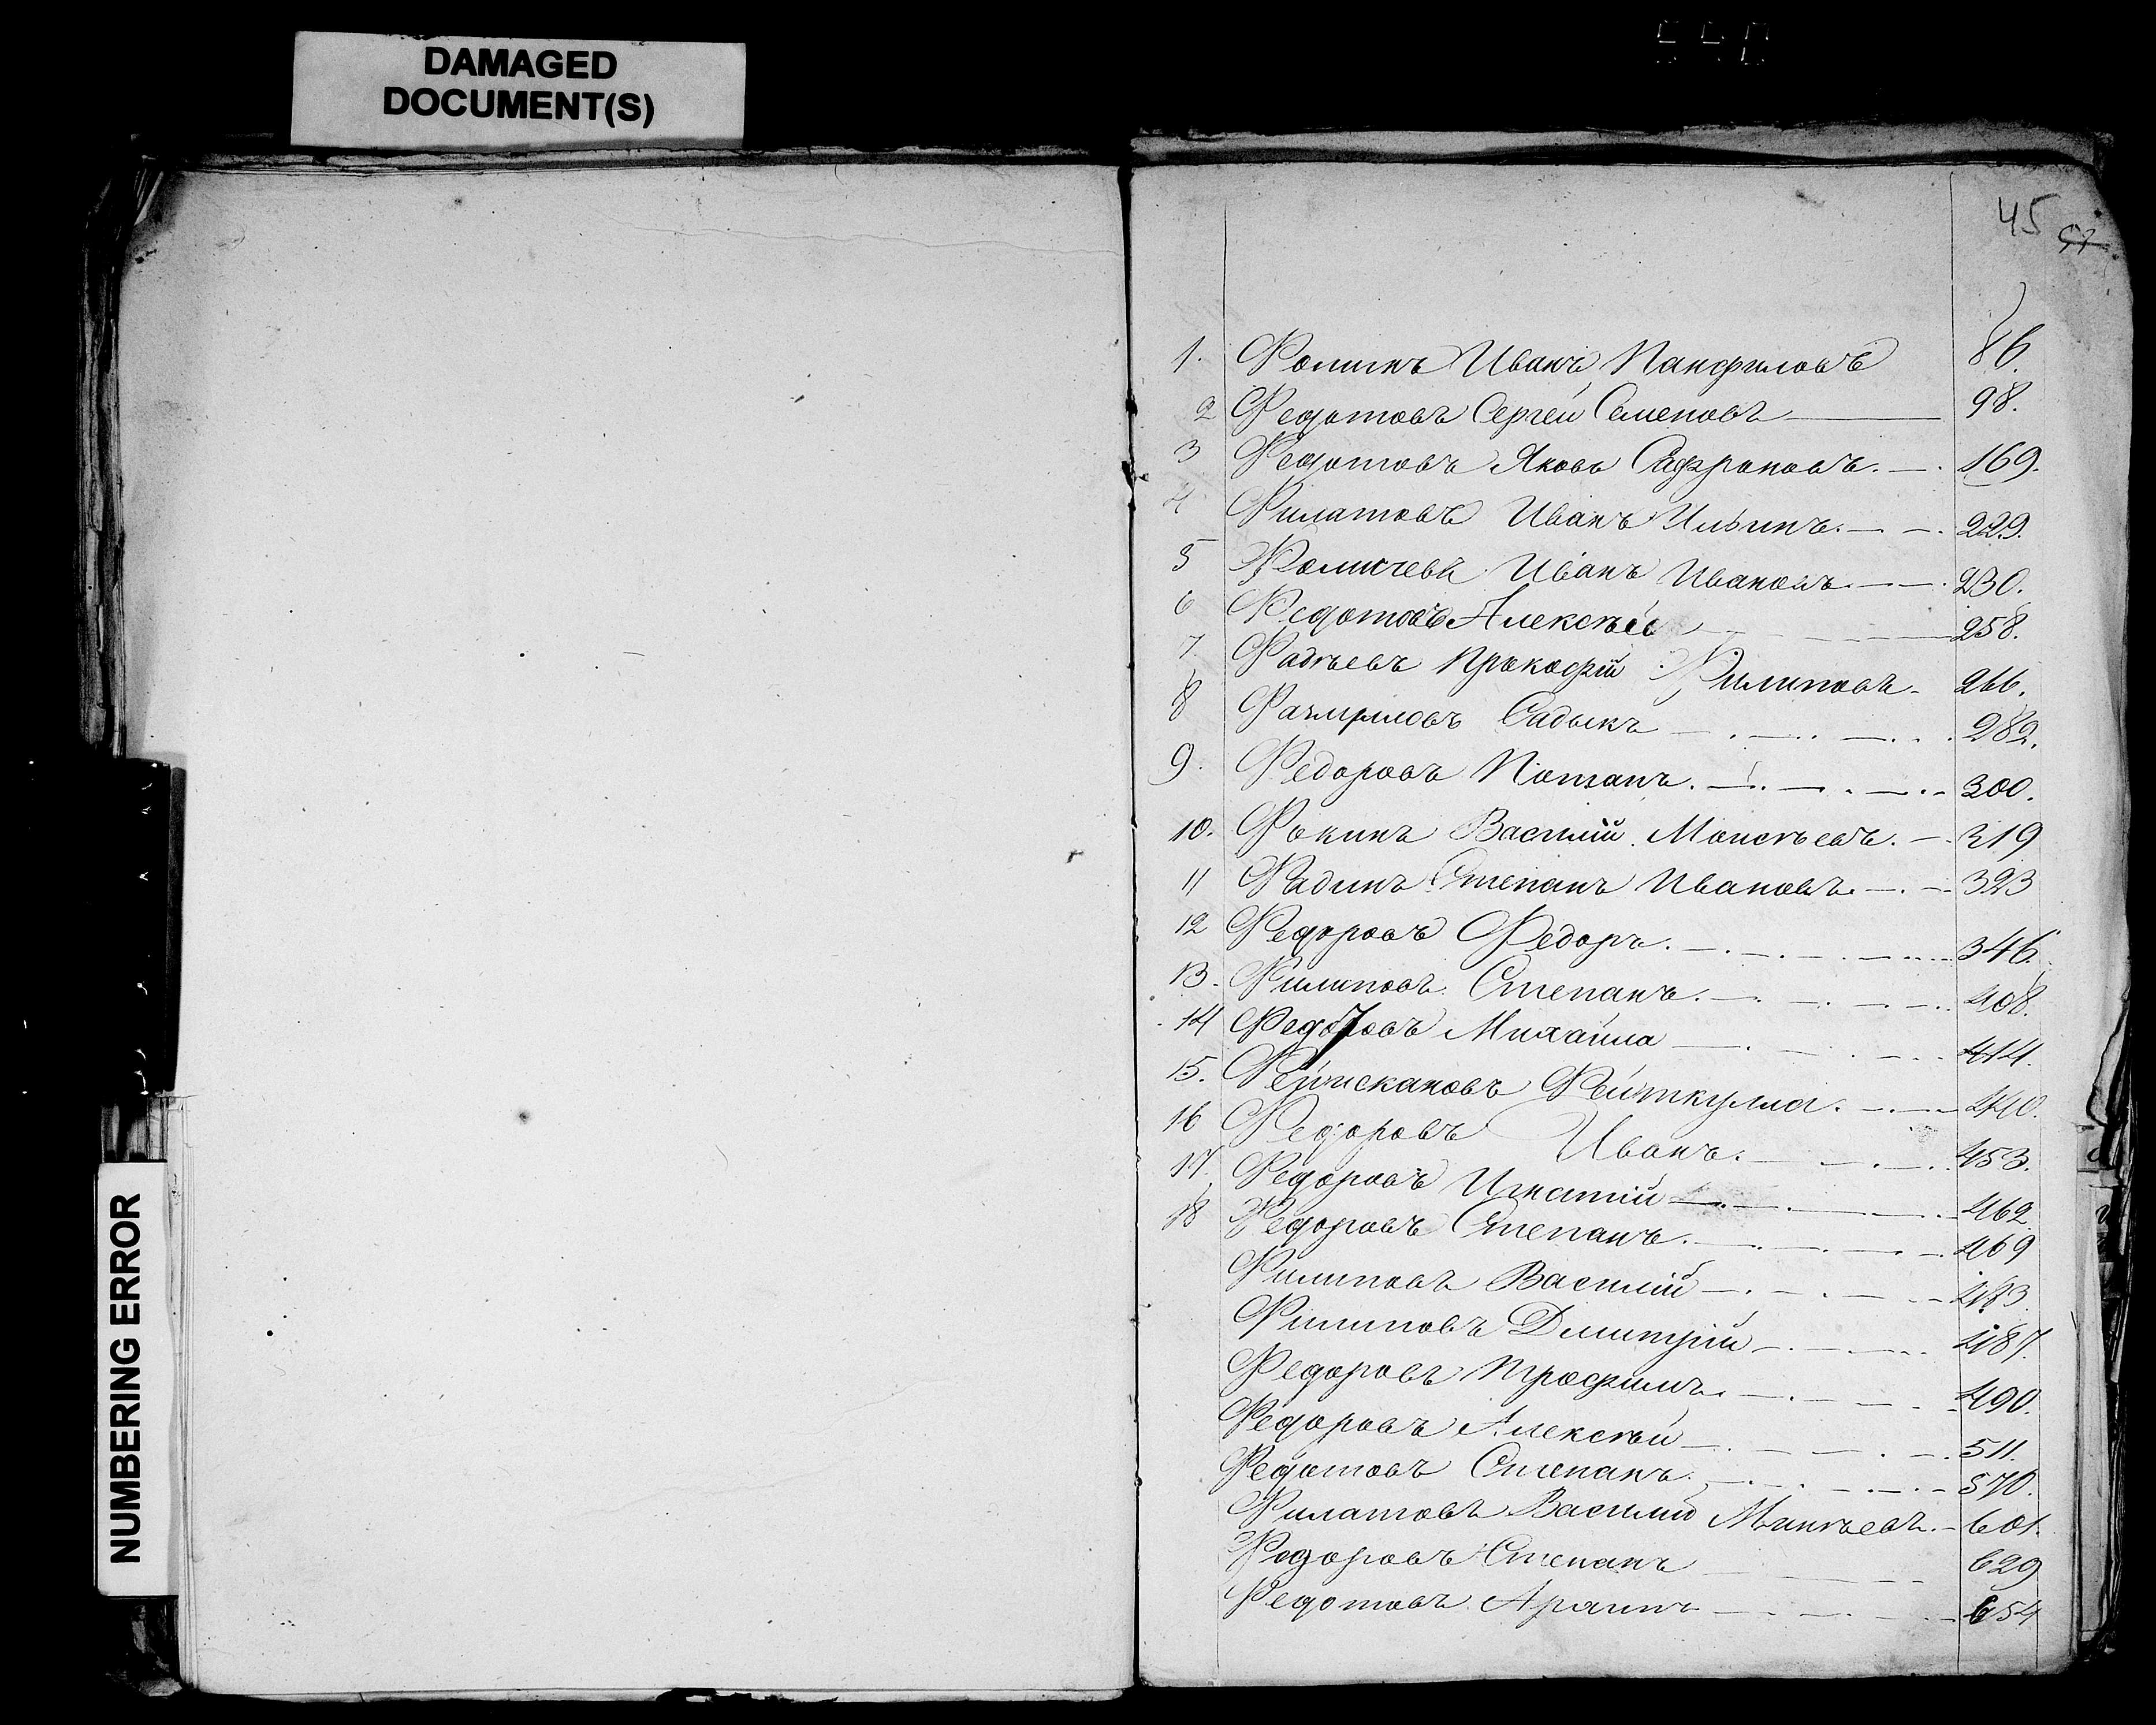 DAMAGED
DOCUMENT(S)
NUMBERING ERROR
45
57
1. Фоминъ Иванъ Панфиловъ 86.
2 Федотовъ Сергей Семеновъ 98.
3 Федотовъ Яковъ Сафроновъ. 169.
4 Филатовъ Иванъ Ильинъ. 229.
5 Фомичевъ Иванъ Ивановъ 230.
6 Федотовъ Алексѣй 258.
7. Фадѣевъ Прокофій Филиповъ 266.
8 Садыкъ 282.
9. Федоровъ Потапъ. 300.
10. Фокинъ Василій Моисѣевъ. 319
11 Фадинъ Степанъ Ивановъ 323
12 Федоровъ Федоръ. 346.
13. Филиповъ Степанъ. 408.
14 Михаила 414.
15. Фейткулла. 440.
16 Федоровъ Иванъ. 453.
17. Федоровъ Игнатій 462.
18 Федоровъ Степанъ. 469
Филиповъ Василій 483.
Филиповъ Дмитрій 487.
Федоровъ Трофимъ. 490.
Федоровъ Алексѣй 511.
Федотовъ Степанъ. 570.
Филатовъ Василій 601.
Федоровъ Степанъ 629
Федотовъ 654